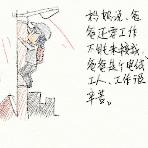 妈妈说，爸
爸还要工作
不能来接我，
爸爸是个电线
工人，工作很
辛苦。